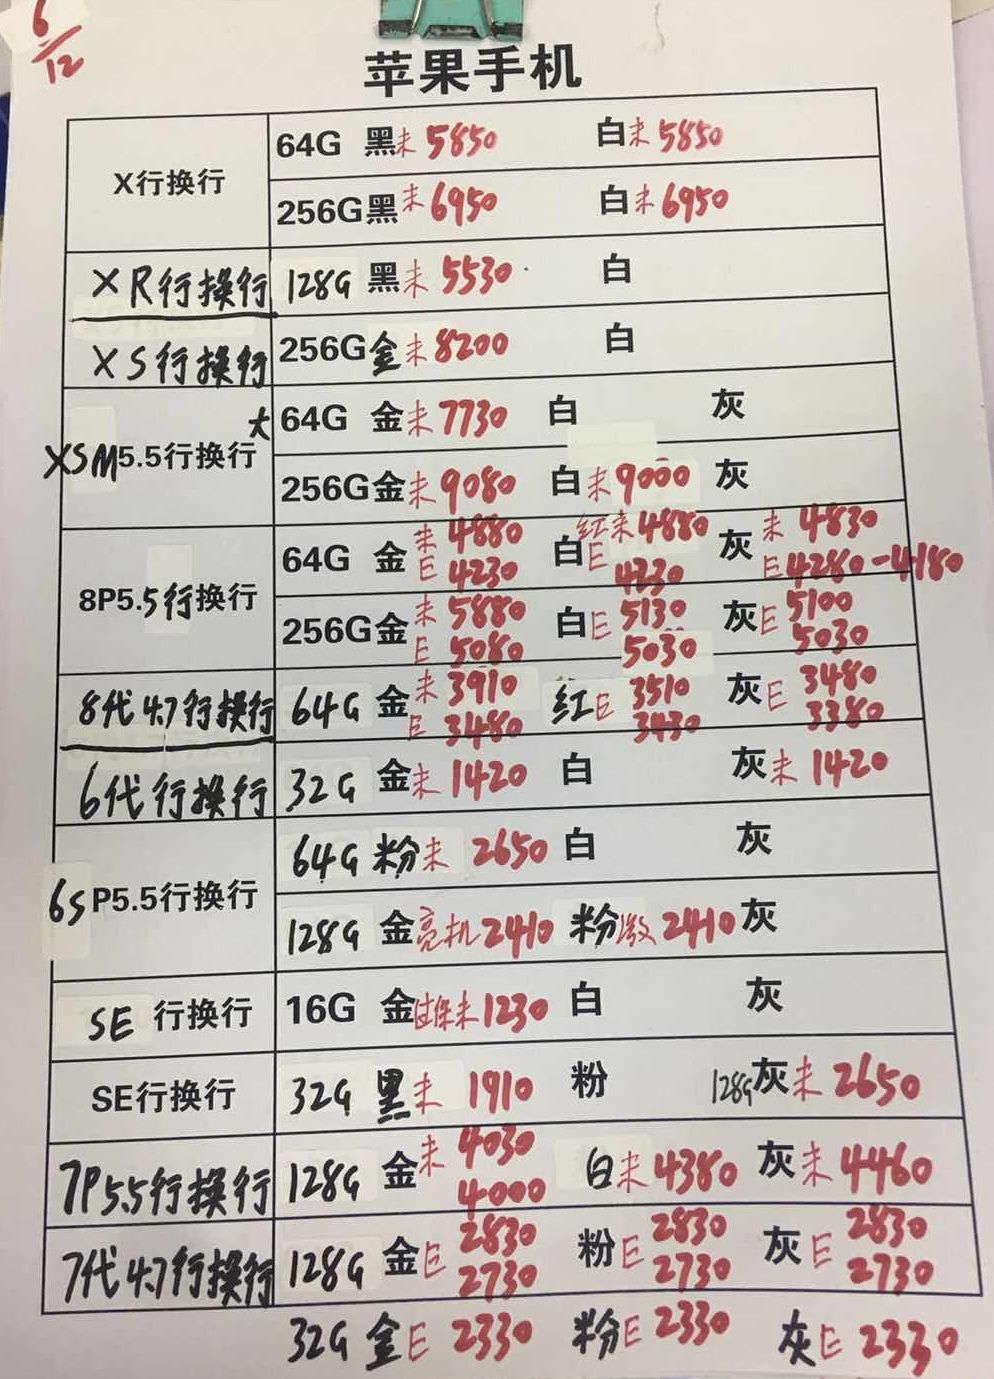 6/12
苹果手机
X行换行
64G 黑未5850 白未5850
256G黑未6950 白未6950
XR行换行 128G 黑未5530 白
XS行换行 256G金未8200 白
大
XSM5.5行换行
64G 金未7730 白 灰
256G金未9080 白未9000 灰
8P5.5行换行
64G 金 未4880 E4230 白 红未4880 E4330 灰 未4830 E4280-4180
256G金 未5880 E5080 白E 5130 5030 灰E 5100 5030
8代4.7行换行 64G 金 未3910 E3480 红E 3510 3430 灰E 3480 3380
6代行换行 32G 金未1420 白 灰未1420
6SP5.5行换行
64G 粉未2650 白 灰
128G 金亮机2410 粉激2410 灰
SE 行换行 16G 金过保未1230 白 灰
SE行换行 32G 黑未1910 粉 128G灰未2650
7P5.5行换行 128G 金未 4030 4000 白未4380 灰未4460
7代4.7行换行 128G 金E 2830 2730 粉E 2830 2730 灰E 2830 2730
32G 金E 2330 粉E 2330 灰E 2330